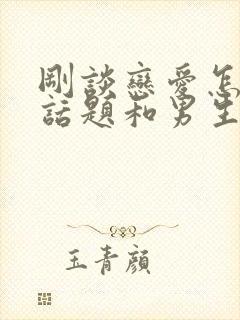 剛談戀愛怎
話題和男生
玉青顏